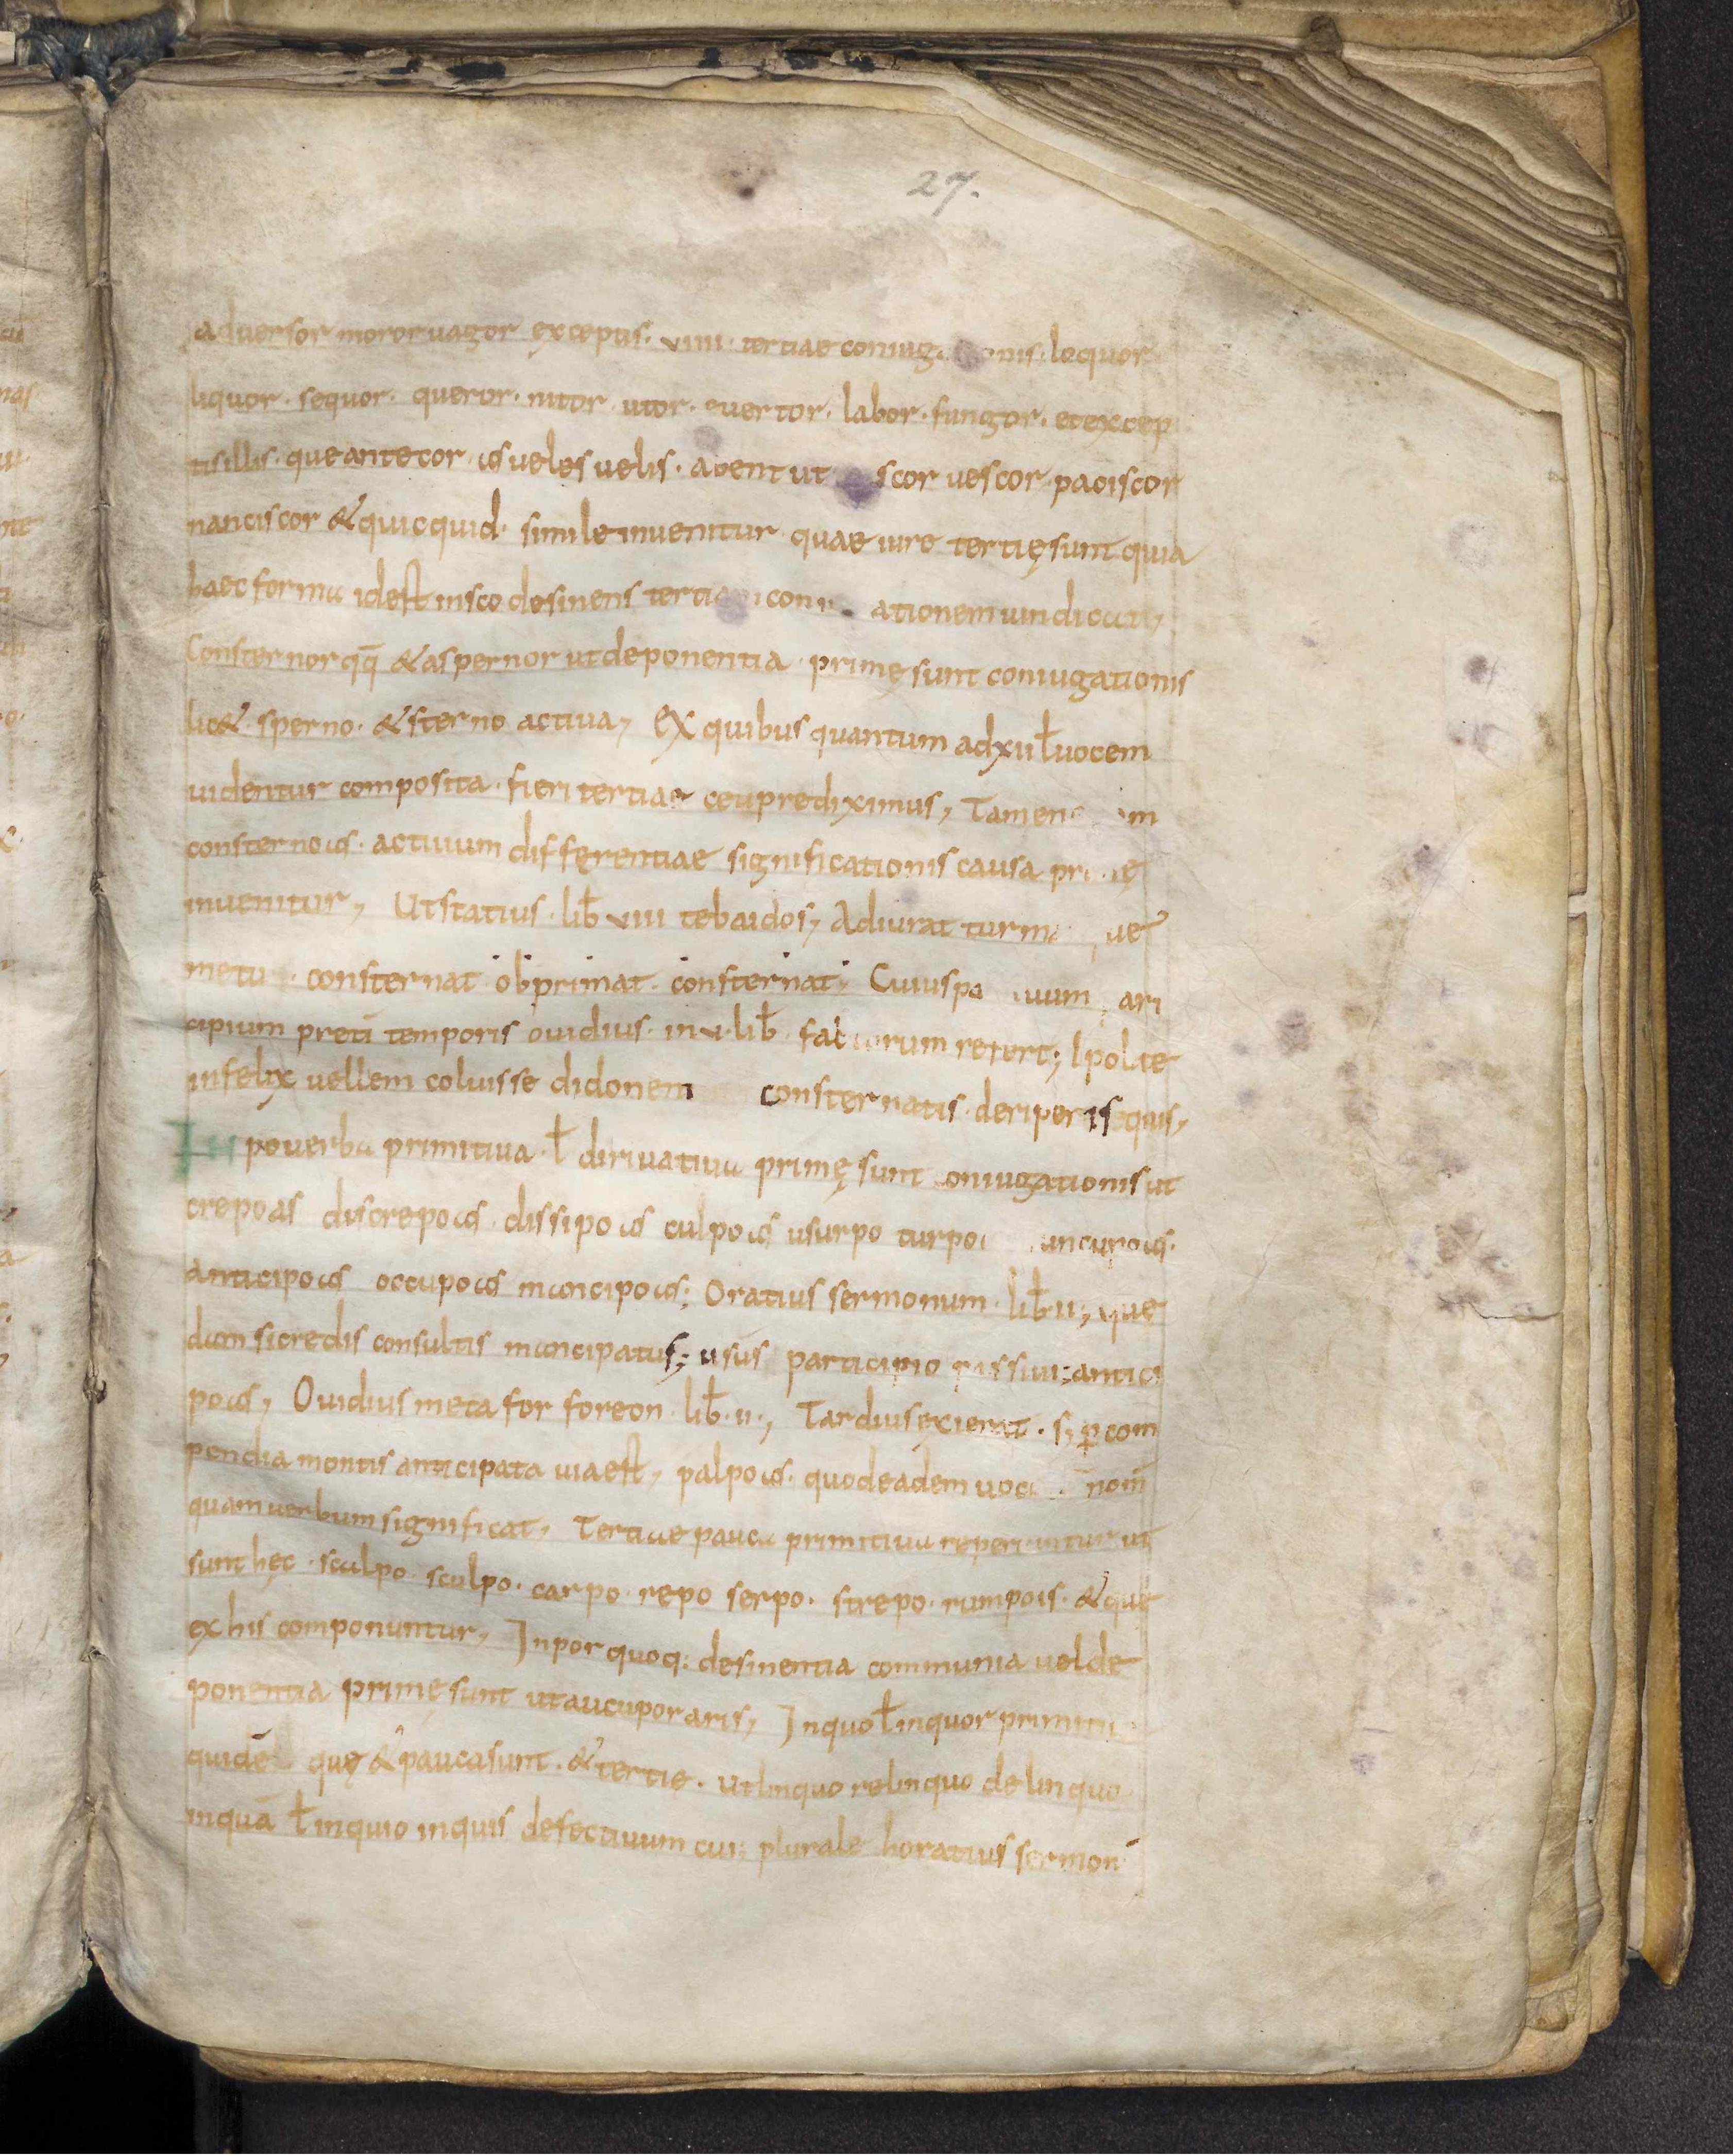 27.
adversor moror uagor exceptis. viiii. tertiae loquor
liquor. sequor. queror. nitor. utor. vertor. labor. fungor. etexcep
tisillis. queantecor. as ueles uelis. abent ut vescor paciscor
nanciscor & quicquid. simile inuenitur quae iure tertię sunt quia
haec forma idest insco desinens uindicat,
Consternor qq̄ & aspernor ut deponentia. primę sunt coniugationis
lic&. sperno. & sterno actiua, Ex quibus quantum adxiił uocem
uidentur composita. fieri tertiae ceu prediximus,
consterno as. actiuum differentiae significationis causa
inuenitur, Ut statius. lib̄ viii tebaidos, Adiurat
consternat obprimat. consternat, Cuius
cipium pretī temporis ouidius. in v. lib̄ refert;
infelix uellem coluisse didonem consternatis. deriper is equis,
In po uerba primitiua. ł diriuatiua primę sunt ut
crepo as discrepo as. dissipo as culpo as usurpo
anticipo as occupo as mancipo as; Oratius sermonum. lib̄. ii; que
dam si credis consultis mancipatus; usus participio passiui; antici
po as, Ouidius metafor foreon. lib̄. ii., Tardius exierat. s; p̱ com
pendia montis anticipata uia est, palpo as. quod eadem nom̄
quam uerbum significat, Tertiae pauca primitiua reperiuntur ut
sunt hęc. scalpo. sculpo. carpo. repo serpo. strepo. rumpo is. & que
ex his componuntur, In por quoq; desinentia communia uel de
ponentia primę sunt ut aucupor aris, In quo ł inquor
quidē quę & pauca sunt. & tertie. ut linquo relinquo delinquo
inquā ł inquio inquis defectiuum cui; plurale horatius sermon̄